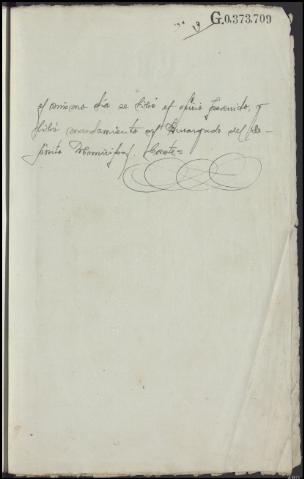 G.0.373.709
el mismo dia se libró el oficio prevenido, y
libró mandamiento al Encargado del De-
pósito Municipal. Conste=